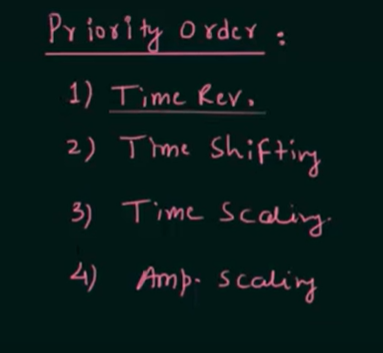 Priority Order :
1) Time Rev.
2) Time Shifting
3) Time Scaling.
4) Amp. scaling